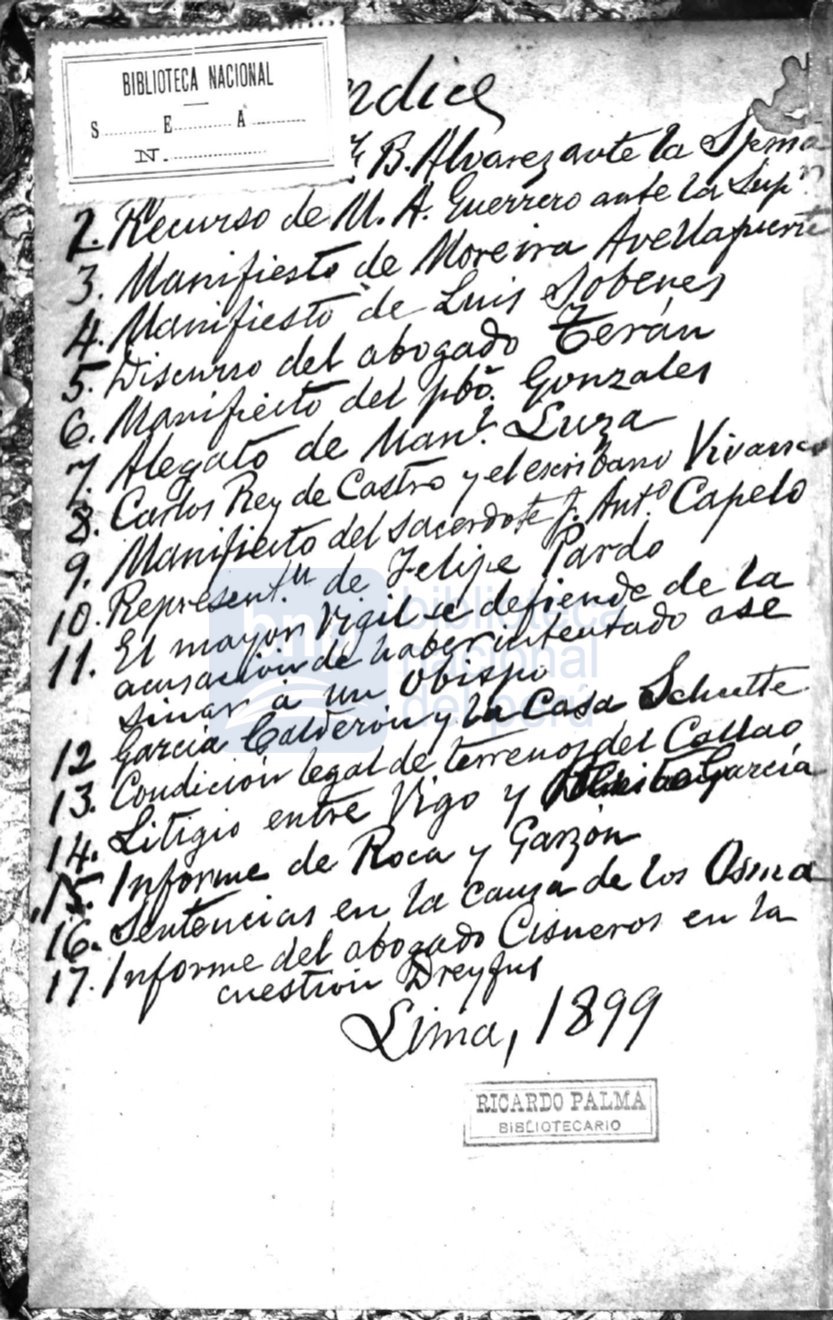 BIBLIOTECA NACIONAL
S E A
N.
ndice
B. Alvarez ante la Spma
2. Recurso de M. A. Guerrero ante la Supn
3. Manifiesto de Moreira Avellapuente
4. Manifiesto de Luis Sobenes
5. Discurso del abogado Terán
6. Manifiesto del pbo. Gonzales
7. Alegato de Manl. Luza
8. Carlos Rey de Castro y el escribano Vivanco
9. Manifiesto del sacerdote J. Anto Capelo
10. Represent.n de Felipe Pardo
11. El mayor Vigil se defiende de la
acusación de haber intentado ase
sinar á un Obispo
12 García Calderón y la Casa Schutte
13. Condición legal de terrenos del Callao
14. Litigio entre Vigo y García
15. Informe de Roca y Garzón
16. Sentencias en la causa de los Osma
17. Informe del abogado Cisneros en la
cuestión Dreyfus
Lima, 1899
RICARDO PALMA
BIBLIOTECARIO
bnp biblioteca
nacional
del perú